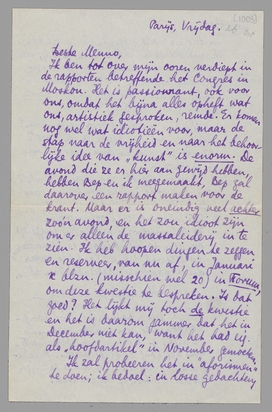 (1005)
Parijs, Vrijdag.
Beste Menno,
Ik ben tot over mijn ooren verdiept in
de rapporten betreffende het Congres in
Moskou. Het is passionnant, ook voor
ons, omdat het bijna alles opheft wat
ons, artistiek gesproken, remde. Er komen
nog wel wat idiotieën voor, maar de
stap naar de vrijheid en naar het behoor-
lijke idee van „kunst” is enorm. De
avond die ze er hier aan gewijd hebben,
hebben Bep en ik meegemaakt, Bep zal
daarover een rapport maken voor de
krant. Maar er is oneindig veel achter
zoo'n avond, en het zou idioot zijn
om er alleen de massaleiderij in te
zien. Ik heb hoopen dingen te zeggen
en reserveer, van nu af, in Januari
x blzn. (misschien wel 20) in Forum,
om deze kwestie te bespreken. Is dat
goed? Het lijkt mij toch de kwestie
en het is daarom jammer dat het in
December niet kan, want het had eig.
als „hoofdartikel” in November gemoeten.
Ik zal probeeren het in aforismen
te doen; ik bedoel: in losse gedachten,